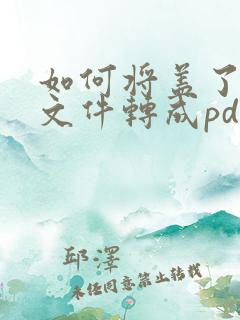 如何将盖了
文件转成pd
邱泽
未经同意禁止转载